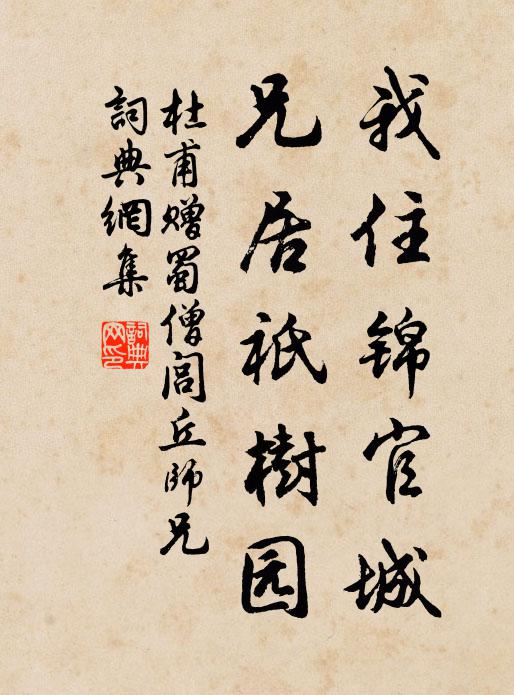 我住锦官城
兄居祇樹园
杜甫赠蜀僧闾丘師兄
詞典網集
詞典网印